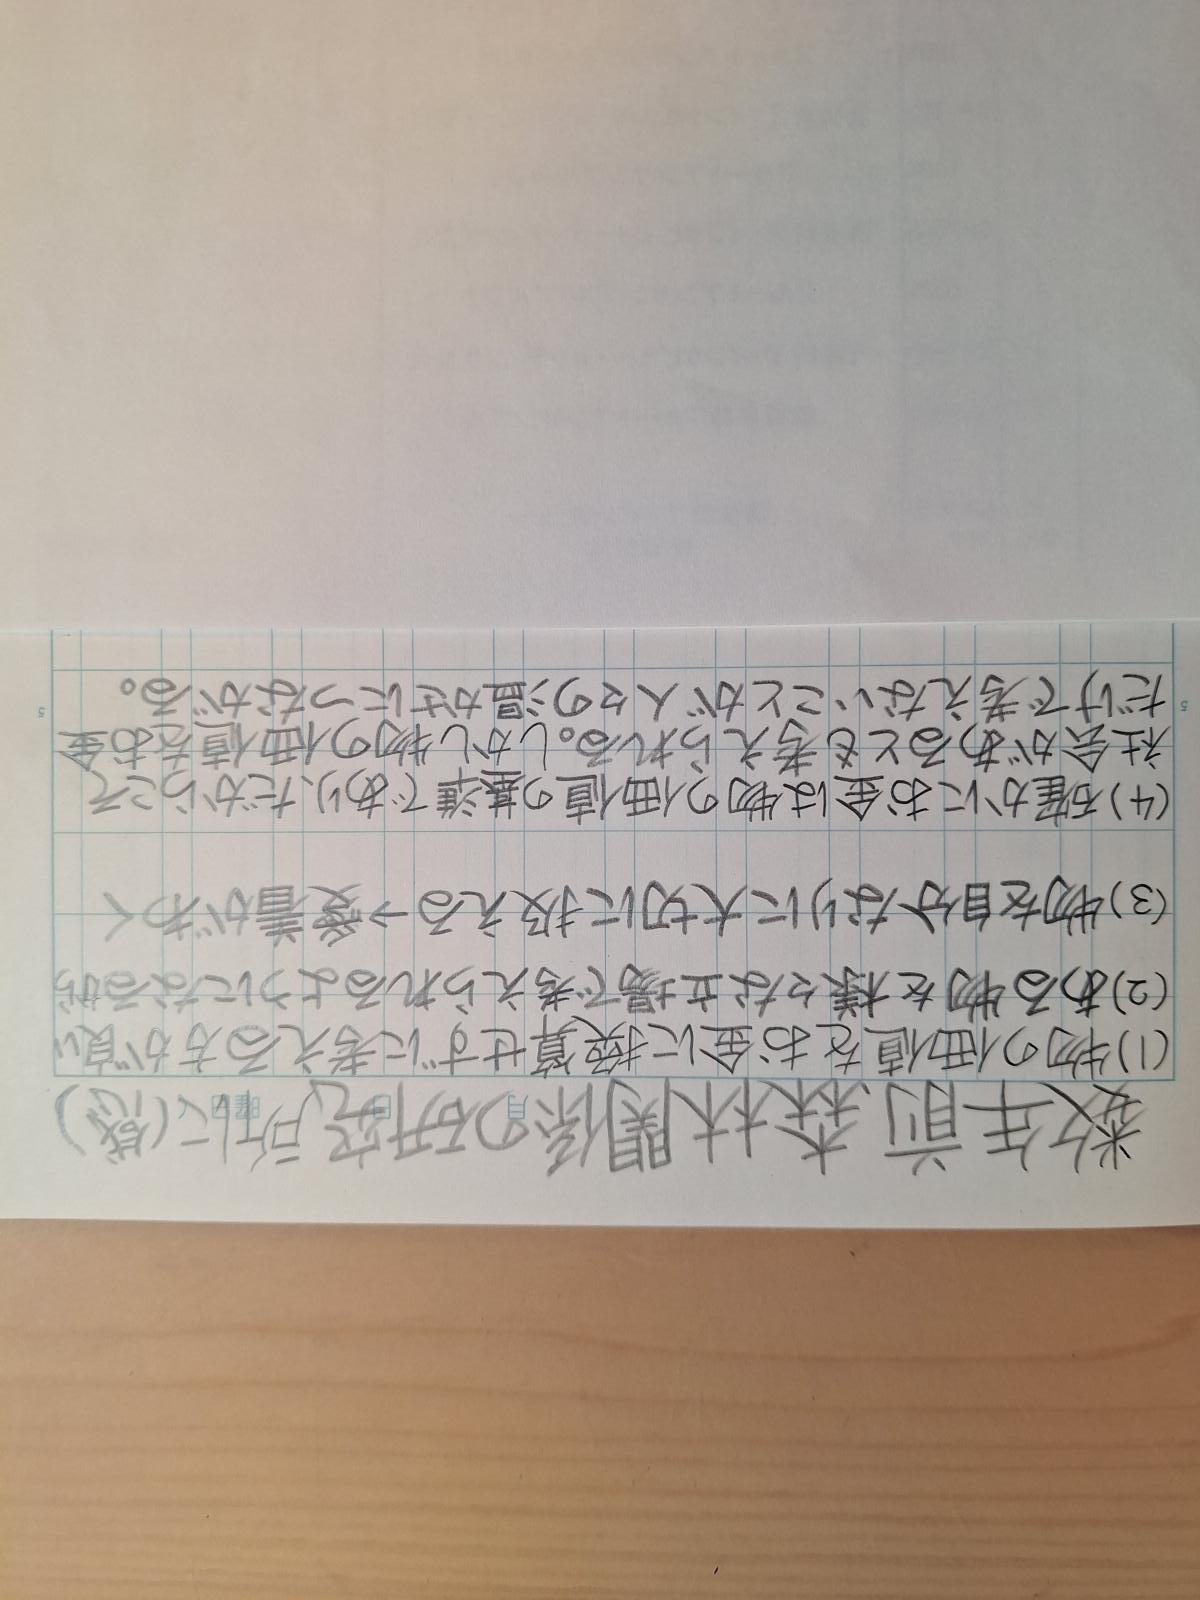 数年前、森林関係の研究所にて(感)
月 日 曜日
(1)物の価値をお金に換算せずに考える方が良い
(2)ある物を様々な立場で考えられるようになるから
(3)物を自分なりに大切に扱える→愛着がわく
(4)確かにお金は物の価値の基準であり、だからこそ
社会があるとも考えられる。しかし物の価値をお金
だけで考えないことが人々の温かさにつながる。
5
5